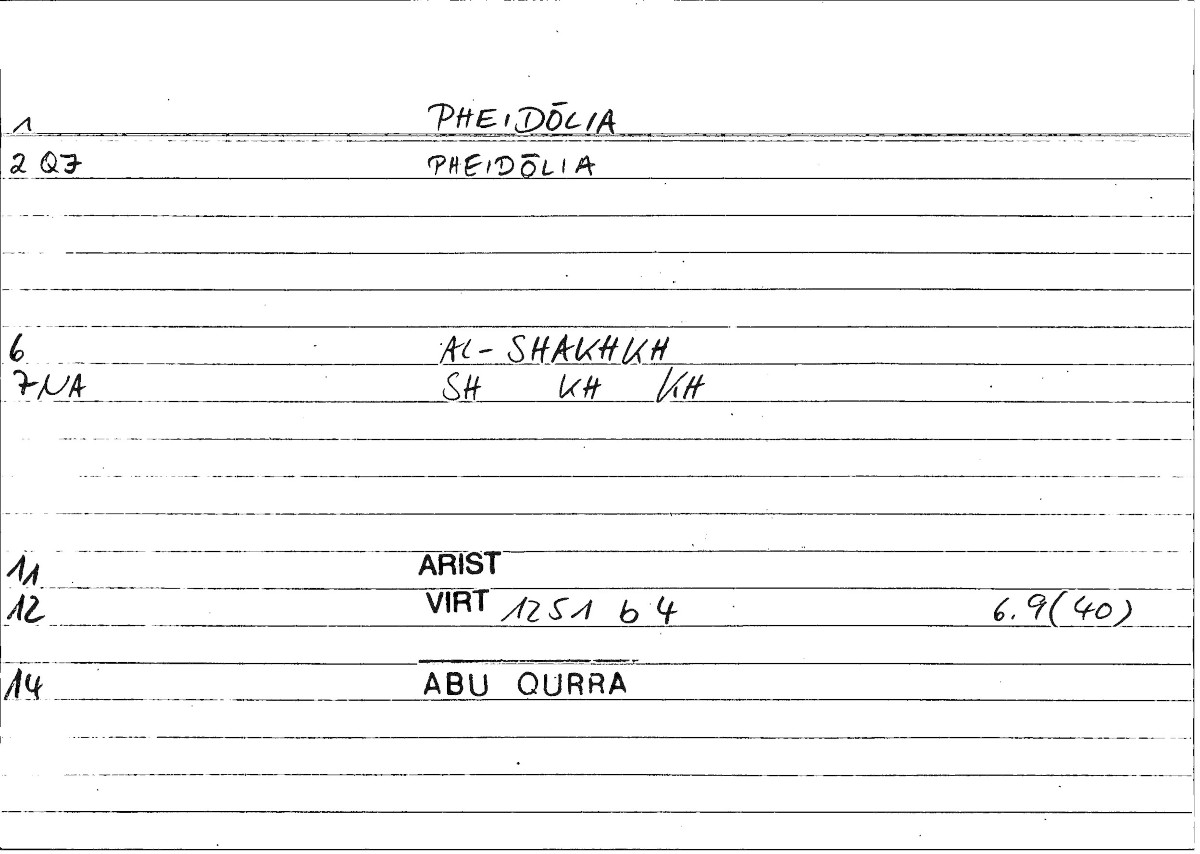 1 PHEIDŌLIA
2 Q7 PHEIDŌLIA
6 AL-SHAKHKH
7NA SH KH KH
11 ARIST
12 VIRT 1251 b 4 6.9(40)
14 ABU QURRA